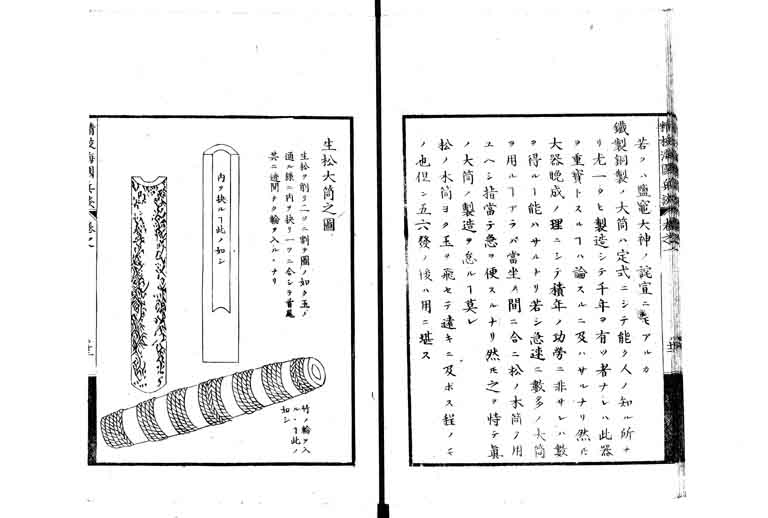 精校海國兵談 卷之一
若クハ鹽竈大神ノ詫宣ニモアルカ
鐵製銅製ノ大筒ハ定式ニシテ能ク人ノ知ル所ナ
リ尤一タヒ製造シテ千年ヲ有ツ者ナレハ此器
ヲ重寶トスルヿハ論スルニ及ハサルナリ然𪜈
大器晩成ノ理ニシテ積年ノ功勞ニ非サレハ數
ヲ得ルヿ能ハサルナリ若シ急速ニ數多ノ大筒
ヲ用ルヿアラバ當坐ノ間ニ合ニ松ノ木筒ヲ用
ユヘシ指當テ急ヲ便スルナリ然𪜈之ヲ恃テ眞
ノ大筒ノ製造ヲ怠ルヿ莫レ
松ノ木筒ヨク玉ヲ飛セテ遠キニ及ボス程ノモ
ノ也但シ五六發ノ後ハ用ニ堪ス
生松大筒之圖
生松ヲ削リ二ツニ割テ圖ノ如ク玉ノ
通ル樣ニ内ヲ抉リ一ツニ合シテ首尾
共ニ透間ナク輪ヲ入ルヽナリ
内ヲ抉ルヿ此ノ如シ
竹ノ輪ヲ入
ルヽヿ此ノ
如シ
精校海國兵談 卷之一